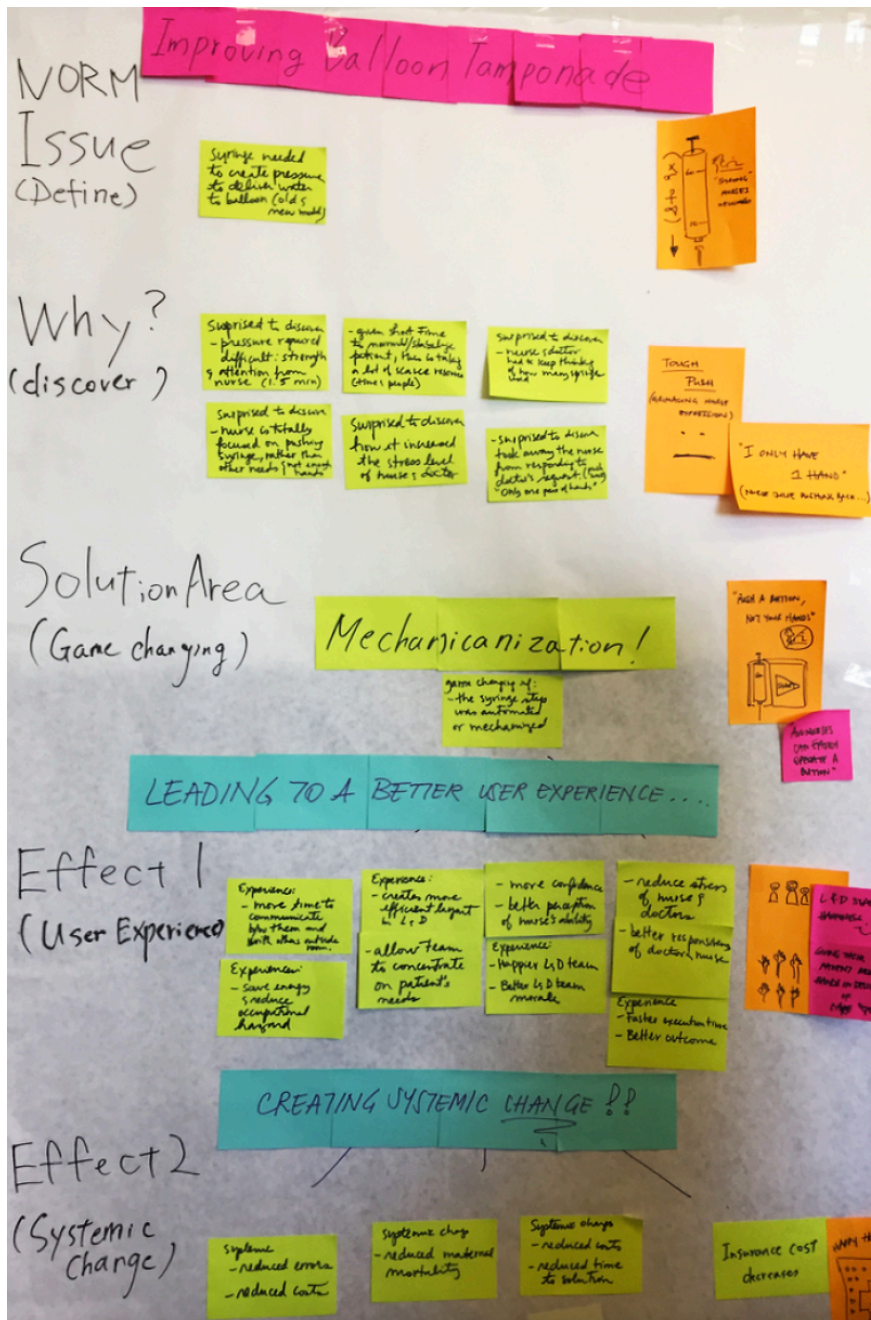 Improving Balloon Tamponade
NORM
Issue
(Define)
Syringe needed
to create pressure
to deliver water
to balloon (old &
new model)
(8+8x)
"STRONG"
NURSES
Why?
(discover)
Surprised to discover
- pressure required
difficult: strength
& attention from
nurse (1.5 min)
- given short time
to
patient, this is taking
a lot of scarce resources
(time & people)
Surprised to discover
- nurse & doctor
had to keep thinking
of how many syringe
Surprised to discover
- nurse is totally
focused on pushing
syringe, rather than
other needs "not enough
hands"
Surprised to discover
how it increased
the stress level
of nurse & doctor
- surprised to discover
took away the nurse
from responding to
doctor's request.
"Only one pair of hands"
TOUGH
PUSH
(GRIMACING NURSE
EXPRESSION)
"I ONLY HAVE
1 HAND"
Solution Area
(Game changing)
Mechanicanization!
game changing if:
- the syringe step
was automated
or mechanized
"PUSH A BUTTON,
NOT YOUR HANDS"
START
ALL NURSES
CAN EASILY
OPERATE A
BUTTON"
LEADING TO A BETTER USER EXPERIENCE....
Effect 1
(User Experience)
Experience:
- more time to
communicate
b/w them and
with others outside
room.
Experience:
- creates more
efficient layout
in L&D
- allow team
to concentrate
on patient's
needs
- more confidence
- better perception
of nurse's ability
- reduce stress
of nurse &
doctors
- better
of doctor & nurse
Experience:
- save energy
& reduce
occupational
hazard
Experience:
- Happier L&D team
- Better L&D team
morale
Experience
- Faster execution time
- Better outcome
L&D
GIVING THEIR
PATIENT
CREATING SYSTEMIC CHANGE!!
Effect 2
(Systemic
Change)
Systemic
- reduced errors
- reduced costs
Systemic change
- reduced maternal
mortality
Systemic change
- reduced costs
- reduced time
to solution
Insurance cost
decreases
HAPPY